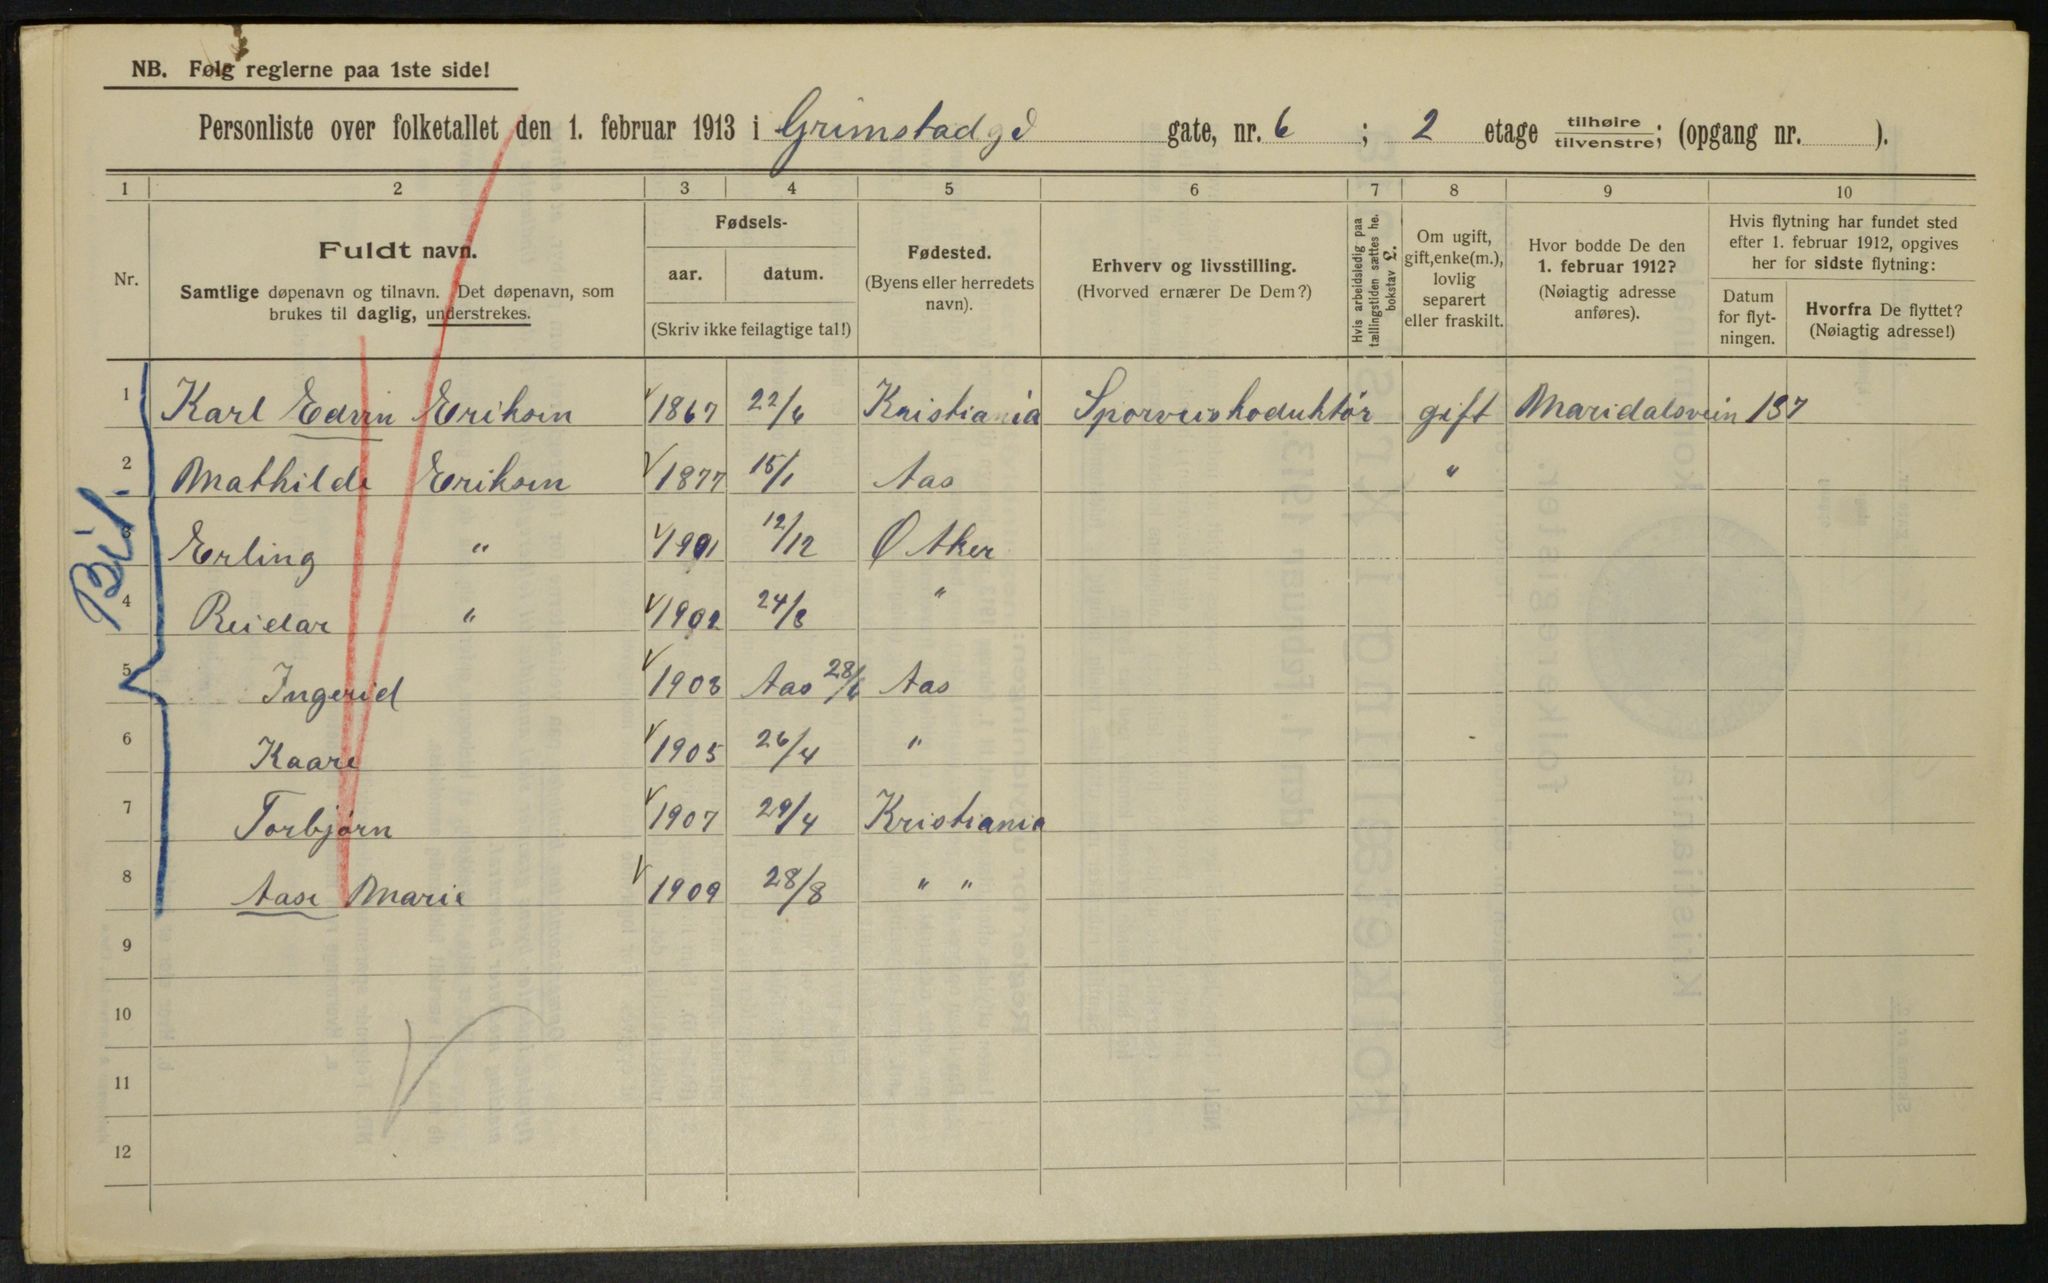 NB. Følg reglerne paa 1ste side!
Personliste over folketallet den 1. februar 1913 i Grimstadgd gate, nr. 6 ; 2 etage tilhøire/tilvenstre; (opgang nr. ).
1 2 3 4 5 6 7 8 9 10
Nr.
Fuldt navn.
Samtlige døpenavn og tilnavn. Det døpenavn, som
brukes til daglig, understrekes.
Fødsels-
aar. datum.
(Skriv ikke feilagtige tal!)
Fødested.
(Byens eller herredets
navn).
Erhverv og livsstilling.
(Hvorved ernærer De Dem?)
Hvis arbeidsledig paa
tællingstiden sættes he.
bokstav L.
Om ugift,
gift, enke(m.),
lovlig
separert
eller fraskilt.
Hvor bodde De den
1. februar 1912?
(Nøiagtig adresse
anføres).
Hvis flytning har fundet sted
efter 1. februar 1912, opgives
her for sidste flytning:
Datum
for flyt-
ningen.
Hvorfra De flyttet?
(Nøiagtig adresse!)
1 Karl Edvin Eriksen 1867 22/6 Kristiania gift Maridalsvein 137
2 Mathilde Eriksen 1877 15/1 Aas "
3 Erling " 1901 12/12 Ø Aker
4 Reidar " 1902 24/8 "
5 Ingerid 1903 Aas 28/6 Aas
6 Kaare 1905 26/4 "
7 Torbjørn 1907 29/4 Kristiania
8 Aase Marie 1909 28/8 " "
9
10
11
12